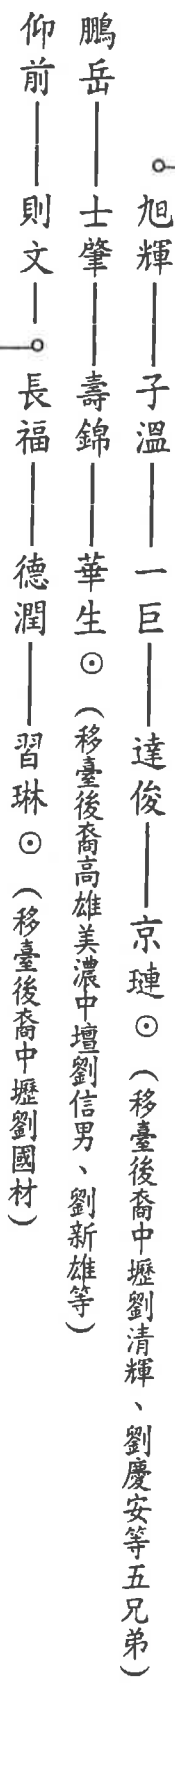 旭輝 子溫 一巨 達俊 京璉⊙（移臺後裔中壢劉清輝、劉慶安等五兄弟）
鵬岳 士肇 壽錦 華生⊙（移臺後裔高雄美濃中壇劉信男、劉新雄等）
仰前 則文 長福 德潤 習琳⊙（移臺後裔中壢劉國材）